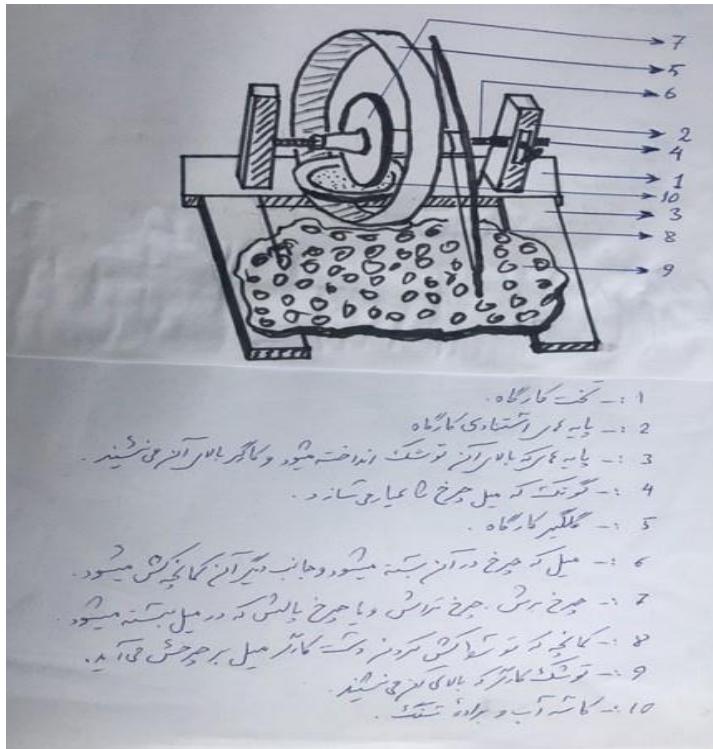 7
5
6
2
4
1
10
3
8
9
1 :- تخت کارگاه.
2 :- پایه های استنادی کارگاه
3 :- پایه های که بالای آن توشک انداخته میشود و کاگر بالای آن می نشیند.
4 :- گونک که میل چرخ را عیار می سازد.
5 :- گلگیر کارگاه.
6 :- میل که چرخ در آن بسته میشود و جانب دیگر آن کمانچه کش میشود.
7 :- چرخ برش، چرخ تراش و یا چرخ پالش که در میل بسته میشود.
8 :- کمانچه که تو کش کردن دست کارگر میل بر چرخش می آید.
9 :- توشک کارگر که بالای آن می نشیند.
10 :- کاسه آب و براده سنگ.